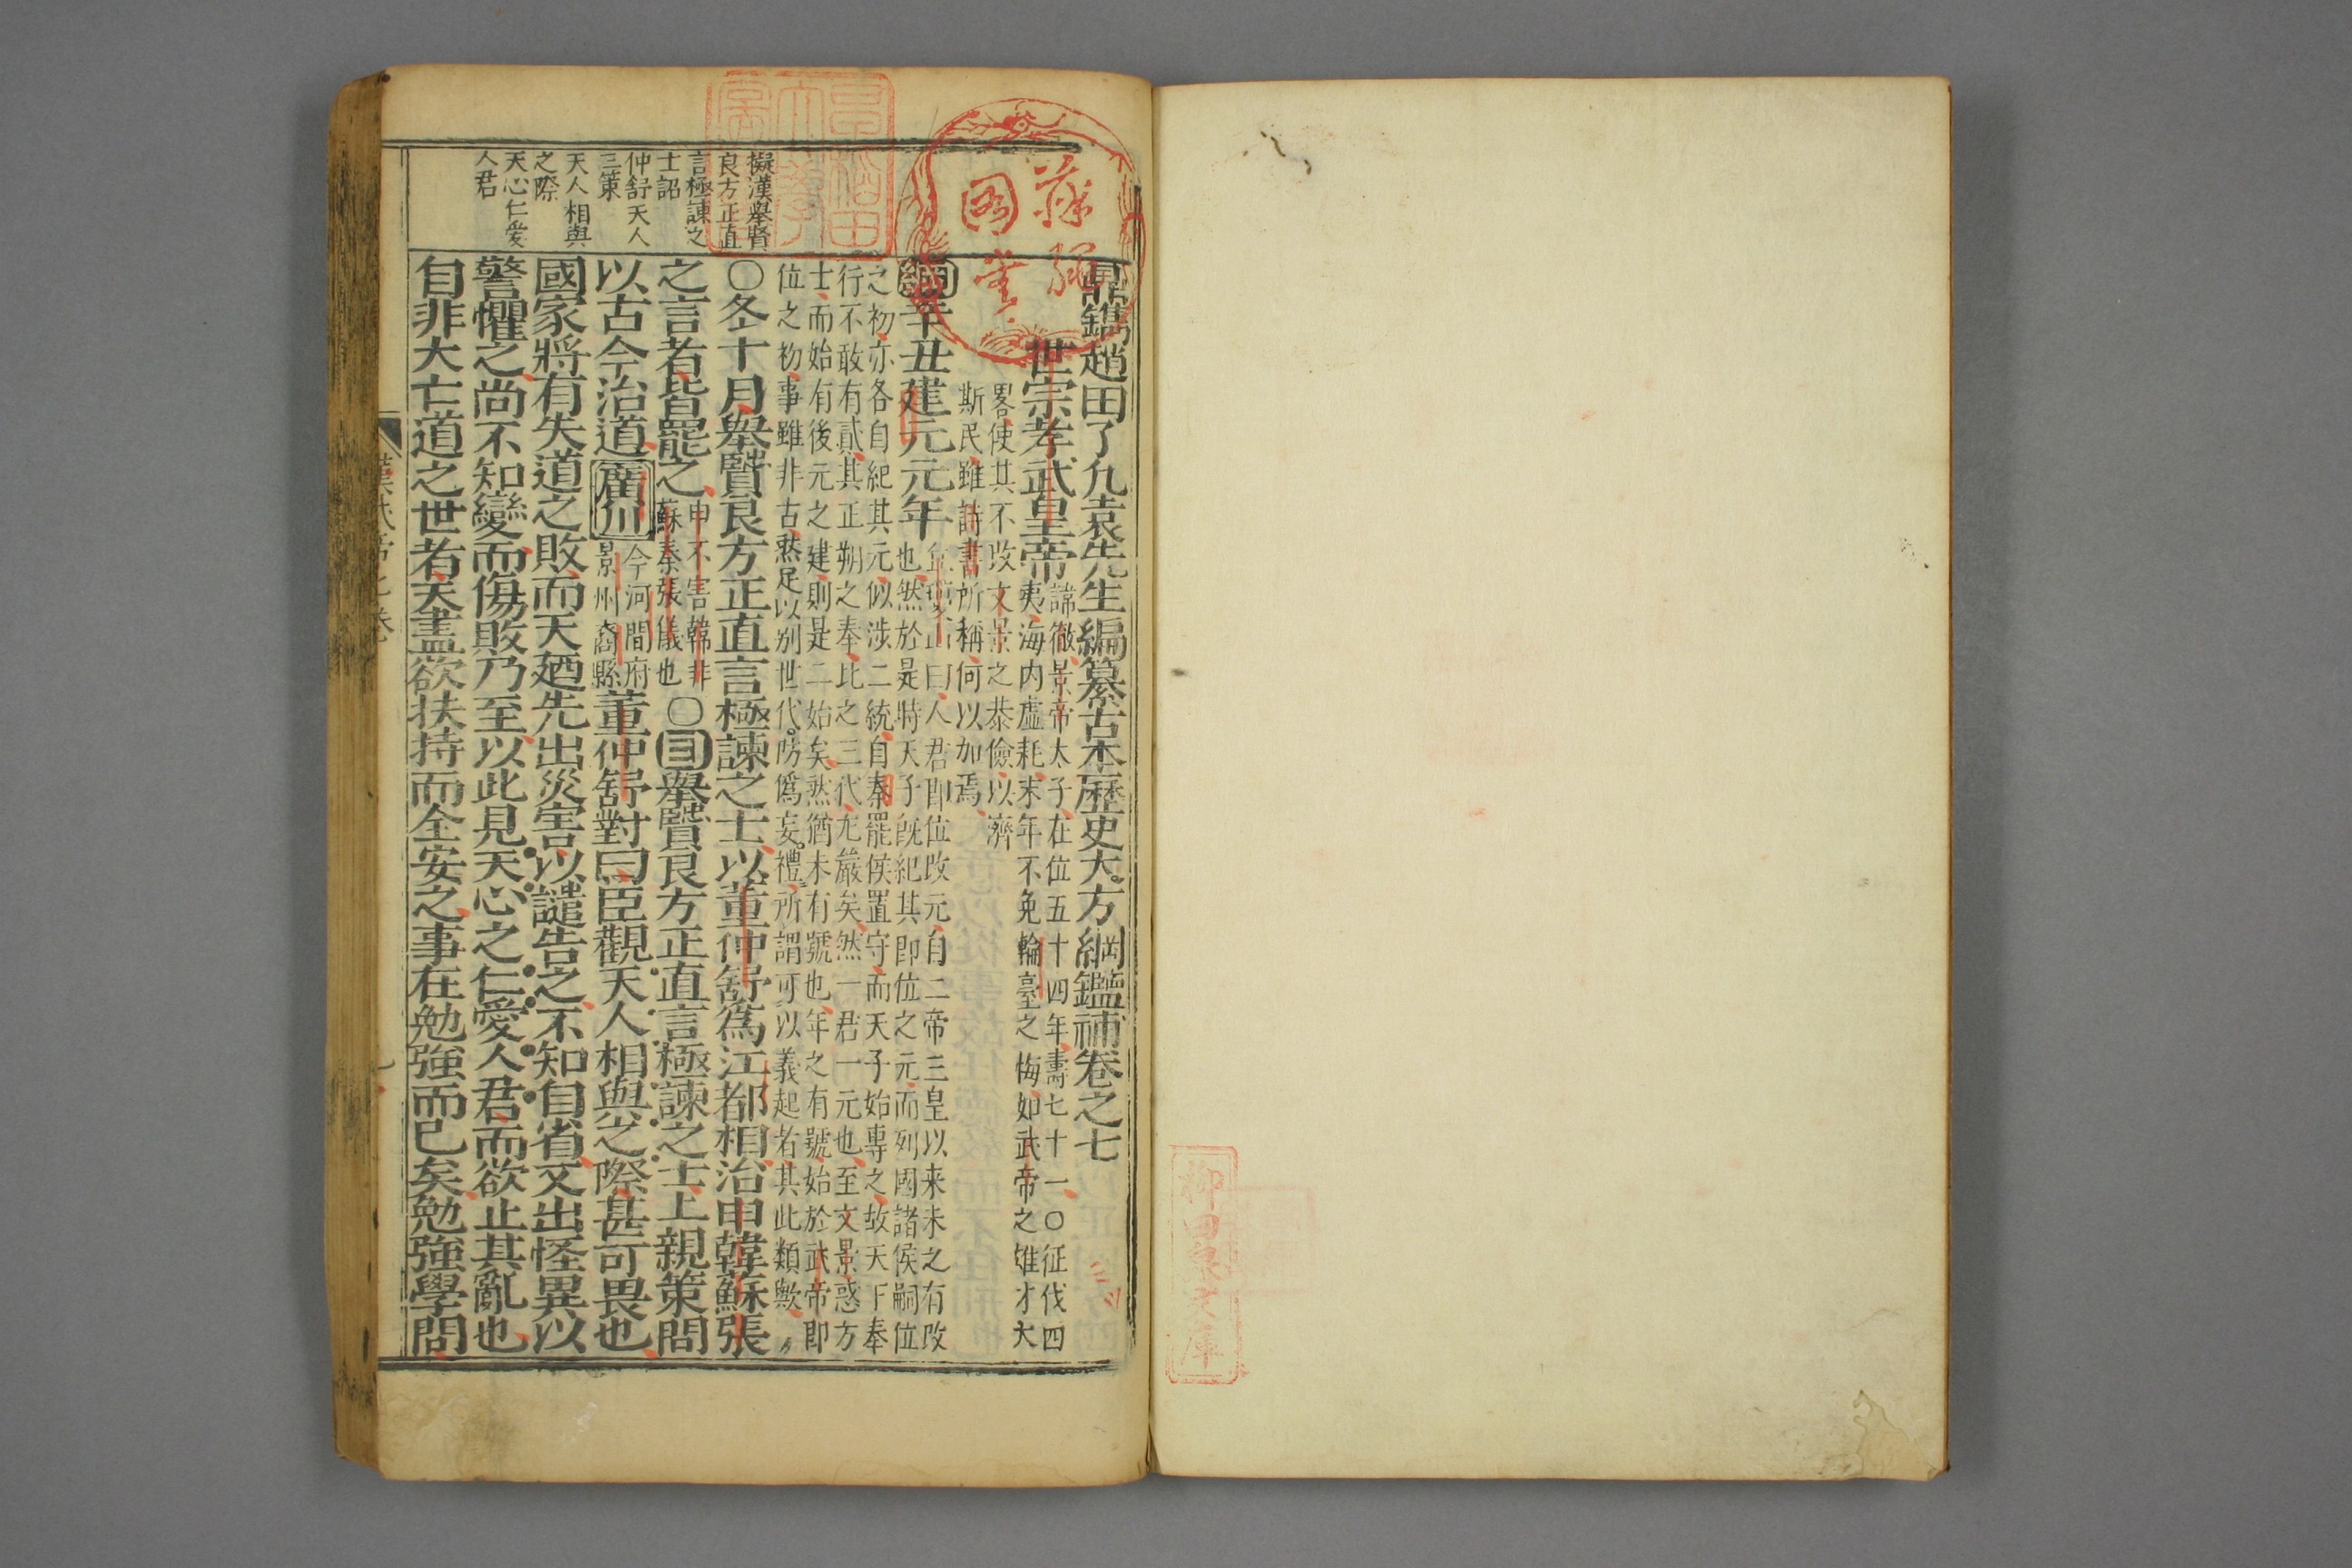 鼎鐫趙田了凡袁先生編纂古本歷史大方綱鑑補卷之七
世宗孝武皇帝
諱徹景帝太子在位五十四年壽七十一〇征伐四
夷海内虛耗末年不免輪臺之悔如武帝之雄才大
畧使其不改文景之恭儉以濟
斯民雖詩書所稱何以加焉
綱辛丑建元元年
曰人君即位改元自二帝三皇以来未之有改
也然於是時天子旣紀其即位之元而列國諸侯嗣位
之初亦各自紀其元似涉二統自秦罷侯置守而天子始專之故天下奉
行不敢有貳其正朔之奉比之三代尤嚴矣然一君一元也至文景惑方
士而始有後元之建則是二始矣然猶未有號也年之有號始於武帝即
位之初事雖非古然足以别世代防僞妄禮所謂可以義起者其此類歟
〇冬十月舉賢良方正直言極諫之士以董仲舒爲江都相治申韓蘇張
之言者皆罷之
申不害韓非
蘇秦張儀也
〇目舉賢良方正直言極諫之士上親策問
以古今治道廣川
今河間府
景州裔縣
董仲舒對曰臣觀天人相與之際甚可畏也
國家將有失道之敗而天廼先出災害以譴告之不知自省又出怪異以
警懼之尚不知變而傷敗乃至以此見天心之仁愛人君而欲止其亂也
自非大亡道之世者天盡欲扶持而全安之事在勉強而已矣勉強學問
擬漢舉賢
良方正直
言極諫之
士詔
仲舒天人
三策
天人相與
之際
天心仁愛
人君
蘇
圖
柳田泉文庫